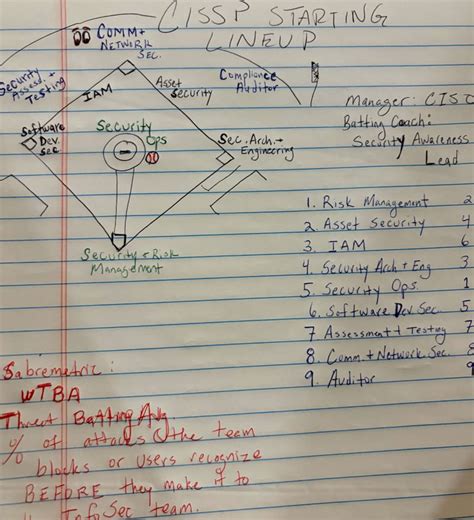 CISSP STARTING
LINEUP
COMM+
NETWORK
SEC.
Security
Assess. +
Testing
IAM
Asset
Security
Compliance
Auditor
Software
Dev.
Sec
Security
Ops
Sec. Arch. +
Engineering
Security + Risk
Management
Manager: CISO
Batting Coach:
Security Awareness
Lead
1. Risk Management 2
2. Asset Security 4
3. IAM 6
4. Security Arch + Eng 3
5. Security Ops 1
6. Software Dev Sec. 5
7 Assessment + Testing 7
8. Comm. + Network Sec. 8
9. Auditor 9
Sabremetric:
wTBA
Threat Batting Avg.
% of attacks the team
blocks or users recognize
BEFORE they make it to
InfoSec team.